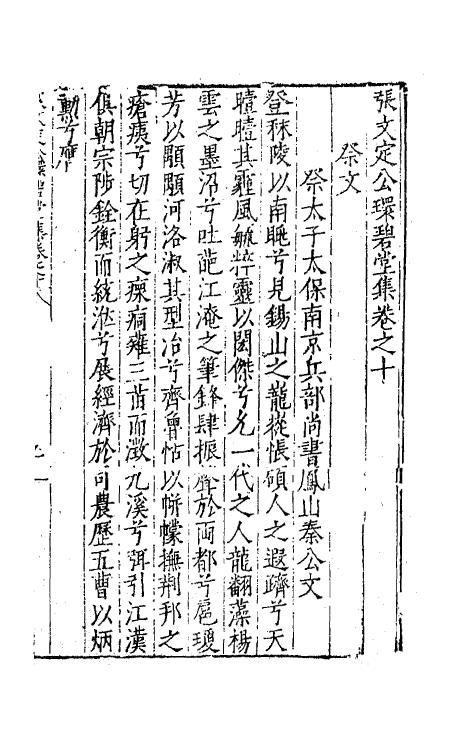 張文定公環碧堂集卷之十
祭文
祭太子太保南京兵部尚書鳳山秦公文
登秣陵以南眺兮見錫山之巃嵸悵碩人之遐躋兮天
曀曀其霾風毓粹靈以閎傑兮允一代之人龍翻藻楊
雲之墨沼兮吐葩江淹之筆鋒肆振於兩都兮扈瓊
芳以顒顒河洛淑其型冶兮齊魯怙以帡幪撫荆邦之
瘡痍兮切在躬之瘝痌雍三苗而澂九溪兮弭引江漢
俱朝宗陟銓衡而統兮展經濟於司農歷五曹以炳
勳兮